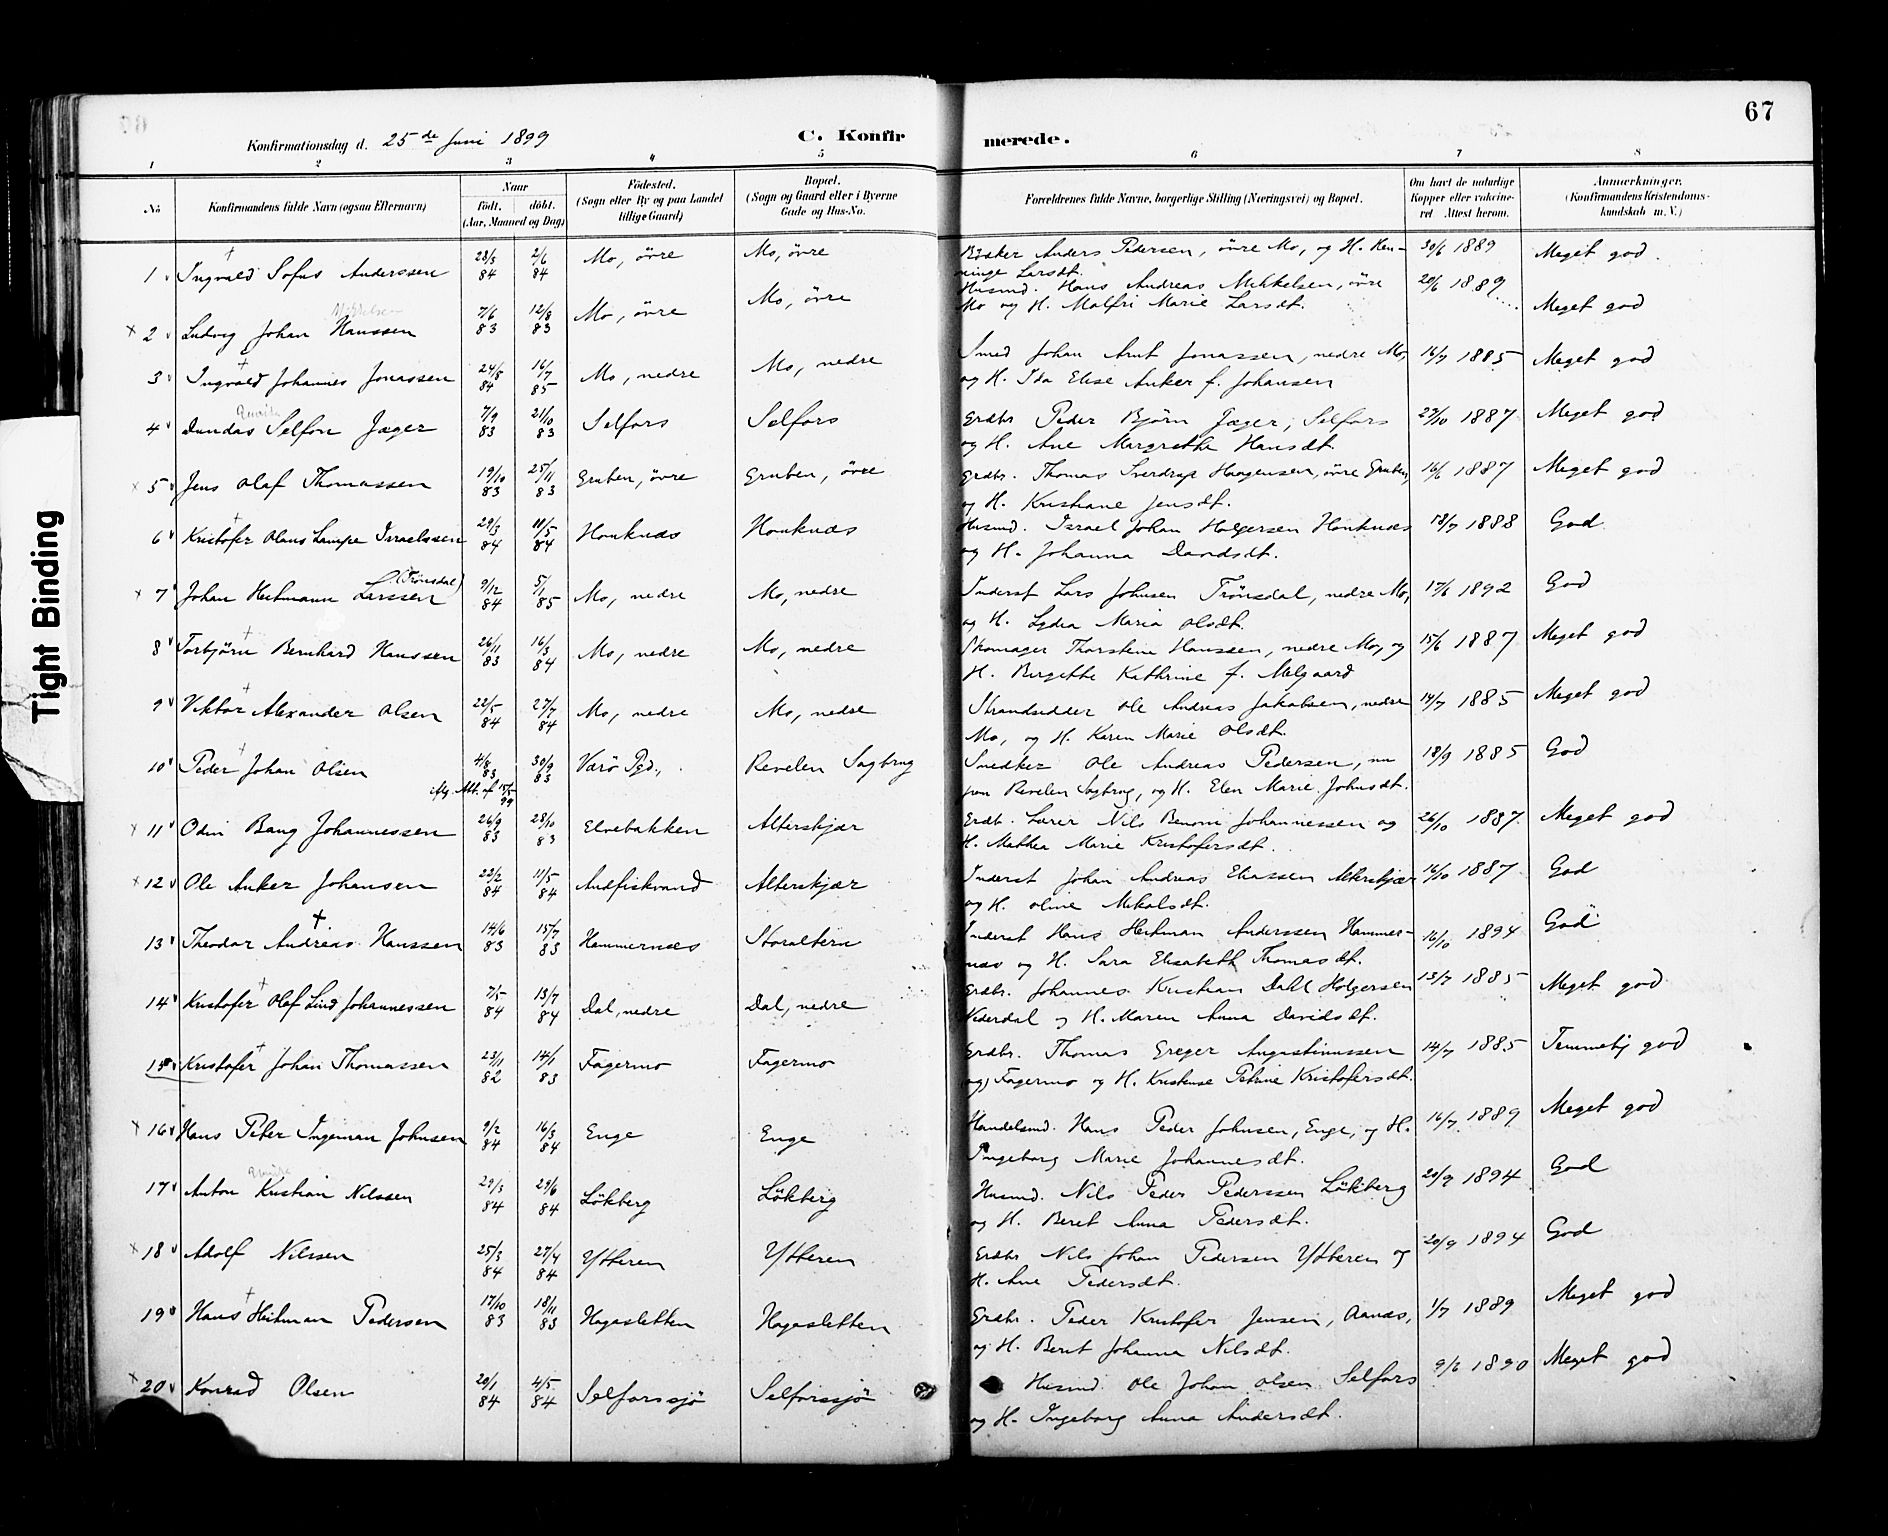 67
Konfirmationsdag d. 25de Juni 1899
C. Konfirmerede.
1 2 3 4 5 6 7 8
No
Konfirmandens fulde Navn (ogsaa Efternavn)
Naar
födt. döbt.
(Aar, Maaned og Dag)
Födested.
(Sogn eller By og paa Landet
tillige Gaard)
Bopæl.
(Sogn og Gaard eller i Byerne
Gade og Hus-No.
Forældrenes fulde Navne, borgerlige Stilling (Næringsvei) og Bopæl.
Om havt de naturlige
Kopper eller vakcine-
ret Attest herom.
Anmærkninger.
(Konfirmandens Kristendoms-
kundskab m. V.)
1 Ingvald Sofus Anderssen 28/3 84 2/6 84 Mo, övre Mo, övre Anders Pedersen, övre Mo, og H. Larsdt. 30/6 1889 Meget god.
2 Ludvig Johan Hanssen Mikkelsen 7/6 83 12/8 83 Mo, övre Mo, övre Husmd. Hans Andreas Mikkelsen, övre
Mo og H. Malfri Marie Larsdt. 20/6 1889 Meget god
3 Ingvald Johannes Jonassen 24/8 84 16/7 85 Mo, nedre Mo, nedre Smed Johan Arnt Jonassen, nedre Mo,
og H. Ida Elise Anker f. Johansen 16/7 1885 Meget god
4 Dundas Selfon Jæger 7/9 83 21/10 83 Selfors Selfors Grdbr Peder Björn Jæger, Selfors
og H. Ane Margrethe Hansdt. 23/10 1887 Meget god
5 Jens Olaf Thomassen 19/10 83 25/11 83 Gruben, övre Gruben, övre Grdbr. Thomas Sverdrup Haagensen, övre Gruben,
og H. Kristiane Jensdt. 16/6 1887 Meget god
6 Kristofer Olaus Lampe Israelssen 29/3 84 11/5 84 Husmd. Israel Johan Holgersen
og H. Johanna Davidsdt. 18/7 1888 God.
7 Johan Heitmann Larssen (Trönsdal) 9/12 84 5/1 85 Mo, nedre Mo, nedre Inderst Lars Johnsen Trönsdal, nedre Mo,
og H. Lydia Maria Olsdt. 17/6 1892 God
8 Torbjörn Bernhard Hanssen 26/11 83 16/3 84 Mo, nedre Mo, nedre Skomager Thorstein Hanssen, nedre Mo, og
H. Birgitte Kathrine f. Melgaard 15/6 1887 Meget god
9 Viktor Alexander Olsen 22/5 84 27/7 84 Mo, nedre Mo, nedre Strandsidder Ole Andreas Jakobsen, nedre
Mo, og H. Karen Marie Olsdt. 19/7 1885 Meget god
10 Peder Johan Olsen 4/8 83 30/9 83 Værö Pgd., Revelen Sagbrug Snedker Ole Andreas Pedersen, nu
paa Revelen Sagbrug, og H. Elen Marie Johnsdt. 18/9 1885 God
Afg. Att. af 15/5 99
11 Odin Bang Johannessen 26/9 83 28/10 83 Elvebakken Alterskjær Grdb. Lærer Nils Benoni Johannessen og
H. Mathea Marie Kristofersdt. 26/10 1887 Meget god
12 Ole Anker Johansen 22/2 84 11/5 84 Andfiskvand Alterskjær Inderst Johan Andreas Eliassen Alterskjær
og H. Oline Mikalsdt. 16/10 1887 God
13 Theodor Andreas Hanssen 14/6 83 15/7 83 Hammernæs Storalteren Inderst Hans Heitman Anderssen Hammer-
næs og H. Sara Elisabeth Thomasdt. 16/10 1894 God
14 Kristofer Olaf Lind Johannessen 7/5 84 13/7 84 Dal, nedre Dal, nedre Grdbr. Johannes Kristian Dahl Holgersen
Nederdal og H. Maren Anna Davidsdt. 13/7 1885 Meget god
15 Kristofer Johan Thomassen 23/11 82 14/1 83 Fagermo Fagermo Grdbr. Thomas Greger Augustinussen
Fagermo og H. Petrine Kristofersdt. 14/7 1885 Temmelig god
16 Hans Peter Ingeman Johnsen 9/2 84 16/3 84 Enge Enge Handelsmd. Hans Peder Johnsen, Enge, og H.
Ingeborg Marie Johannesdt. 16/7 1889 Meget god
17 Anton Kristian Nilssen 29/3 84 29/6 84 Lökberg Lökberg Husmd. Nils Peder Pederssen Lökberg
og H. Beret Anna Pedersdt. 20/9 1894 God
18 Adolf Nilssen 25/3 84 27/4 84 Ytteren Ytteren Grdbr Nils Johan Pedersen Ytteren og
H. Ane Pedersdt. 20/9 1894 God
19 Hans Heitman Pedersen 17/10 83 18/11 83 Hagasletten Hagasletten Grdbr. Peder Kristofer Jensen, Aanæs,
og H. Berit Johanna Nilsdt. 1/7 1889 Meget god
20 Konrad Olsen 20/1 84 4/5 84 Selforssjö Selforssjö Husmd. Ole Johan Olsen Selfors
og H. Ingeborg Anna Andersdt. 9/6 1890 Meget god
Tight Binding